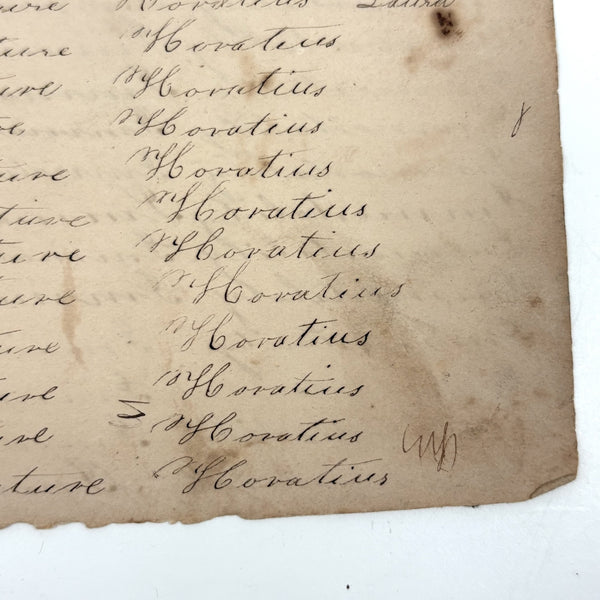 ure Horatius Laura
ture Horatius
ure Horatius
re Horatius
ture Horatius
ture Horatius
ture Horatius
ture Horatius
ure Horatius
ure Horatius
ure Horatius
ature Horatius